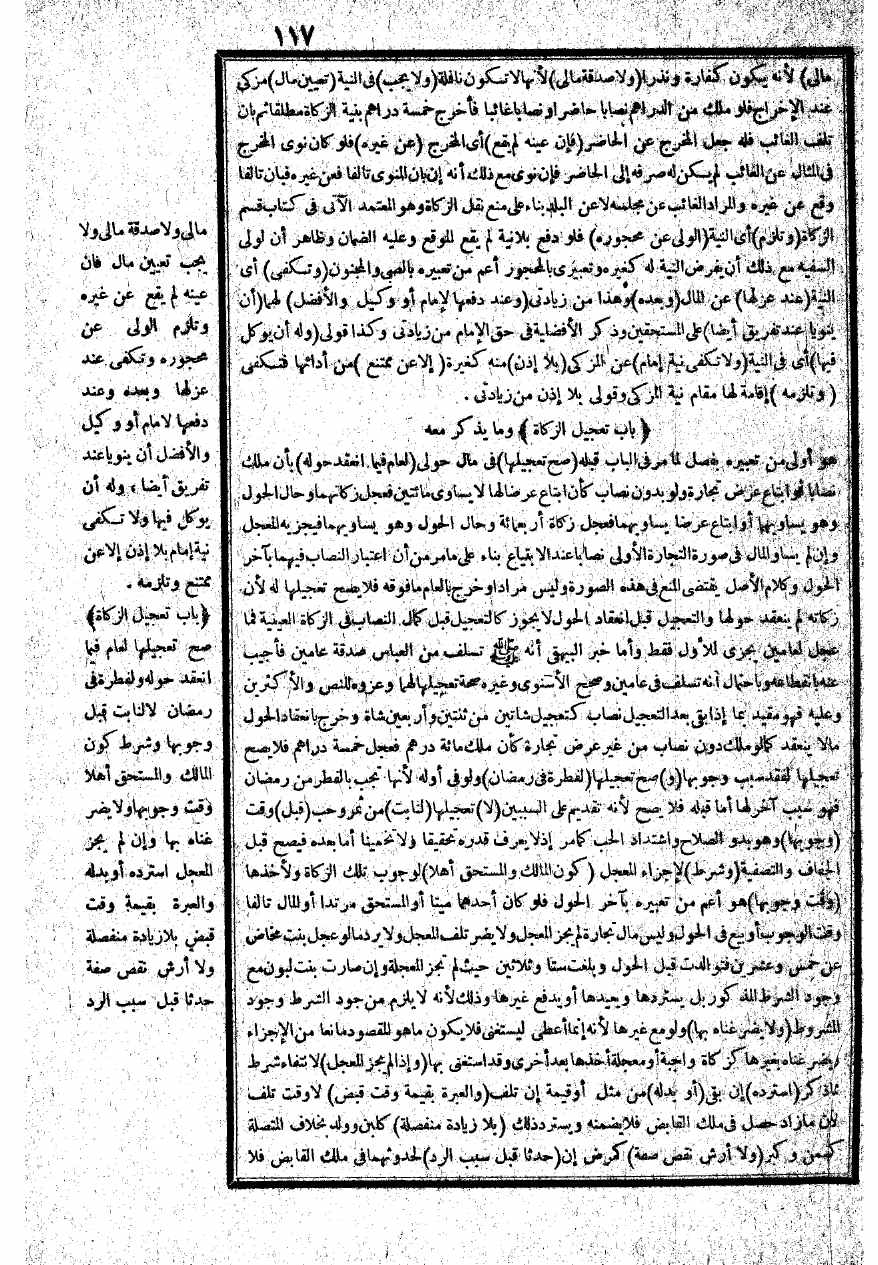 ١١٧
مالى) لأنه يكون كفارة ونذرا(ولاصدقة مالى)لأنها لا تكون نافلة(ولا يجب)فى النية(تعيين مال)مزكى
عند الإخراج فلو ملك من الدراهم نصابا حاضرا ونصابا غائبا فأخرج خمسة دراهم بنية الزكاة مطلقا ثم بان
تلف الغائب فله جعل المخرج عن الحاضر(فإن عينه لم يقع)أى المخرج (عن غيره)فلو كان نوى المخرج
فى المثال عن الغائب لم يكن له صرفه إلى الحاضر فإن نوى مع ذلك أنه إن بان المنوى تالفا فعن غيره فبان تالفا
وقع عن غيره والمراد الغائب عن مجلسه لا عن البلد بناء على منع نقل الزكاة وهو المعتمد الآتى فى كتاب قسم
الزكاة(وتلزم)أى النية(الولى عن محجوره) فلو دفع بلا نية لم يقع الموقع وعليه الضمان وظاهر أن لولى
السفيه مع ذلك أن يفوض النية له كغيره وتعبيرى بالمحجور أعم من تعبيره بالصبى والمجنون(وتكفى) أى
النية(عند عزلها) عن المال(وبعده)وهذا من زيادتى(وعند دفعها لإمام أو وكيل والأفضل) لهما(أن
ينويا عند تفريق أيضا)على المستحقين وذكر الأفضلية فى حق الإمام من زيادتى وكذا قولى(وله أن يوكل
فيها)أى فى النية(ولا تكفى نية إمام)عن المزكى(بلا إذن)منه كغيره(إلا عن ممتنع )من أدائها فتكفى
(وتلزمه )إقامة لها مقام نية المزكى وقولى بلا إذن من زيادتى .
﴿باب تعجيل الزكاة﴾ وما يذكر معه
هو أولى من تعبيره بفصل لما مر فى الباب قبله(صح تعجيلها)فى مال حولى(لعام فيما انعقد حوله)بأن ملك
نصابا أو ابتاع عرض تجارة ولو بدون نصاب كأن ابتاع عرضا لها لا يساوى مائتين فعجل زكاتهما وحال الحول
وهو يساويهما أو ابتاع عرضا يساويهما فعجل زكاة أربعمائة وحال الحول وهو يساويهما فيجزيه المعجل
وإن لم يساو المال فى صورة التجارة الأولى نصابا عند الابتياع بناء على ما مر من أن اعتبار النصاب فيها بآخر
الحول وكلام الأصل يقتضى المنع فى هذه الصورة وليس مرادا وخرج بالعام ما فوقه فلا يصح تعجيلها له لأن
زكاته لم ينعقد حولها والتعجيل قبل انعقاد الحول لا يجوز كالتعجيل قبل كمال النصاب فى الزكاة العينية فما
عجل لعامين يجزى للأول فقط وأما خبر البيهقى أنه ﷺ تسلف من العباس صدقة عامين فأجيب
عنه بانقطاعه وباحتمال أنه تسلف فى عامين وصحح الأسنوى وغيره صحة تعجيلها لهما وعزوه للنص والأكثرين
وعليه فهو مقيد بما إذا بقى بعد التعجيل نصاب كتعجيل شاتين من ثنتين وأربعين شاة وخرج بانعقاد الحول
ما لا ينعقد كما لو ملك دون نصاب من غير عرض تجارة كأن ملك مائة درهم فعجل خمسة دراهم فلا يصح
تعجيلها لفقد سبب وجوبها(و)صح تعجيلها(لفطرة فى رمضان)ولو فى أوله لأنها تجب بالفطر من رمضان
فهو سبب آخر لها أما قبله فلا يصح لأنه تقديم على السببين(لا)تعجيلها(لنابت)من ثمر وحب(قبل)وقت
(وجوبها)وهو بدو الصلاح واشتداد الحب كما مر إذ لا يعرف قدره تحقيقا ولا تخمينا أما بعده فيصح قبل
الجفاف والتصفية(وشرط)لإجزاء المعجل (كون المالك والمستحق أهلا)لوجوب تلك الزكاة ولأخذها
(وقت وجوبها)هو أعم من تعبيره بآخر الحول فلو كان أحدهما ميتا أو المستحق مرتدا أو المال تالفا
وقت الوجوب أو بيع فى الحول وليس مال تجارة لم يجز المعجل ولا يضر تلف المعجل ولا يرد ما لو عجل بنت مخاض
عن خمس وعشرين فتوالدت قبل الحول وبلغت ستا وثلاثين حيث لم تجز المعجلة وإن صارت بنت لبون مع
وجود الشرط المذكور بل يستردها ويعيدها أو يدفع غيرها وذلك لأنه لا يلزم من وجود الشرط وجود
المشروط(ولا يضر غناه بها)ولو مع غيرها لأنه إنما أعطى ليستغنى فلا يكون ما هو المقصود مانعا من الإجزاء
ويضر غناه بغيرها كزكاة واجبة أو معجلة أخذها بعد أخرى وقد استغنى بها(وإذا لم يجز المعجل)لانتفاء شرط
مما ذكر(استرده)إن بقى(أو بدله)من مثل أو قيمة إن تلف(والعبرة بقيمة وقت قبض) لا وقت تلف
لأن ما زاد حصل فى ملك القابض فلا يضمنه ويسترد ذلك (بلا زيادة منفصلة) كلبن وولد بخلاف المتصلة
كسمن وكبر(ولا أرش نقص صفة)كمرض إن(حدثا قبل سبب الرد)لحدوثهما فى ملك القابض فلا
مالى ولا صدقة مالى ولا
يجب تعيين مال فان
عينه لم يقع عن غيره
وتلزم الولى عن
محجوره وتكفى عند
عزلها وبعده وعند
دفعها لامام أو وكيل
والأفضل أن ينويا عند
تفريق أيضا ، وله أن
يوكل فيها ولا تكفى
نية إمام بلا إذن إلا عن
ممتنع وتلزمه .
﴿باب تعجيل الزكاة﴾
صح تعجيلها لعام فيما
انعقد حوله ولفطرة فى
رمضان لا لنابت قبل
وجوبها وشرط كون
المالك والمستحق أهلا
وقت وجوبها ولا يضر
غناه بها وإن لم يجز
المعجل استرده أو بدله
والعبرة بقيمة وقت
قبض بلا زيادة منفصلة
ولا أرش نقص صفة
حدثا قبل سبب الرد